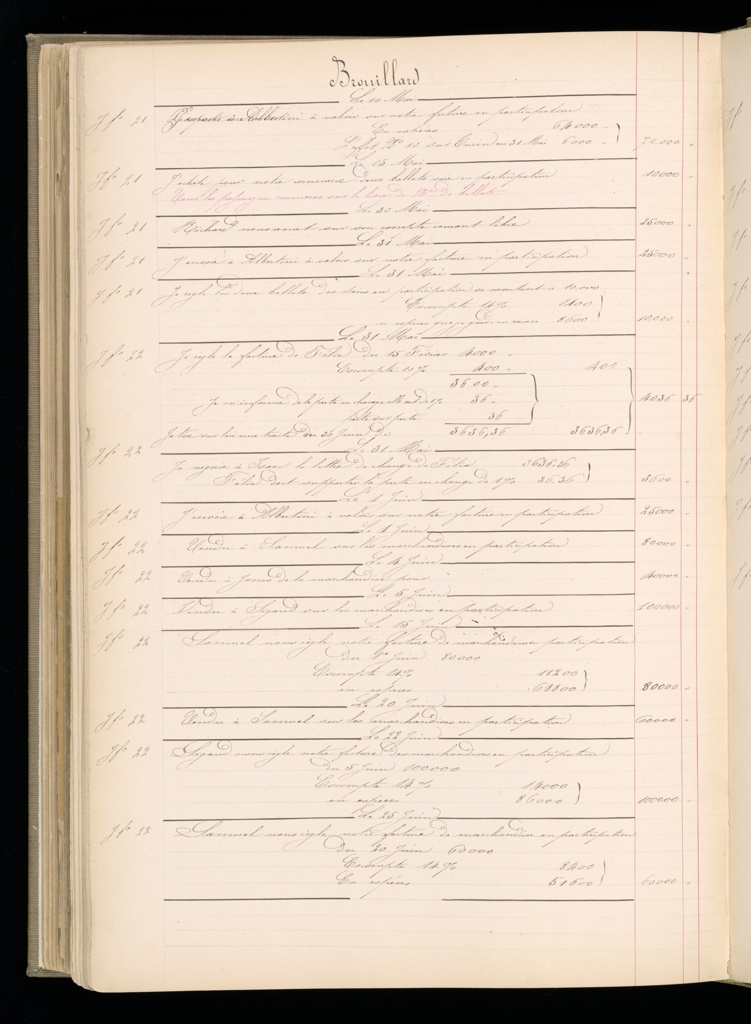 Brouillard
Le 10 Mai
Jfo 21 à Albertini à valoir sur notre facture en participation
En espèces 64000 "
L'effet No 10 sur au 31 Mai 6000 " 70.000 "
Le 15 Mai
Jfo 21 J'achète pour notre deux ballots soie en participation 10000 "
sur le livre de de ballots
Le 30 Mai
Jfo 21 Richard nous sur son compte courant libre 25000 "
Le 31 Mai
Jfo 21 J'envoie à Albertini à valoir sur notre facture en participation 25000 "
Le 31 Mai
Jfo 21 Je règle les deux ballots de soie en participation se montant à 10.000
Escompte 14% 1400
en espèces que je 8600 10,000 "
Le 31 Mai
Jfo 22 Je règle la facture de Félix du 15 Février 4000 "
Escompte 10% 400 " 400 "
3600 "
de la perte en change 1% 36 " 4036 36
perte sur perte 36
Je tire sur lui une traite au 30 Juin de 3636,36 3636,36
Le 31 Mai
Jfo 22 Je négocie à Isaac la lettre de change de Félix 3636.36
Félix doit supporter la perte en change de 1% 36,36 3600 "
Le 1 Juin
Jfo 22 J'envoie à Albertini à valoir sur notre facture en participation 25000 "
Le 1 Juin
Jfo 22 Vendu à Samuel sur les marchandises en participation 80000 "
Le 4 Juin
Jfo 22 Vendu à de la marchandise pour 40000 "
Le 5 Juin
Jfo 22 Vendu à Sigaud sur les marchandises en participation 100000 "
Le 15 Juin
Jfo 22 Samuel nous règle notre facture de marchandises en participation
du 1er Juin 80000
Escompte 14% 11200
en espèces 68800 80000 "
Le 20 Juin
Jfo 22 Vendu à Samuel sur les marchandises en participation 60000 "
Le 22 Juin
Jfo 22 Sigaud nous règle notre facture des marchandises en participation
du 5 Juin 100000
Escompte 14% 14000
en espèces 86000 100000 "
Le 25 Juin
Jfo 22 Samuel nous règle notre facture de marchandise en participation
du 20 Juin 60000
Escompte 14% 8400
En espèces 51600 60000 "